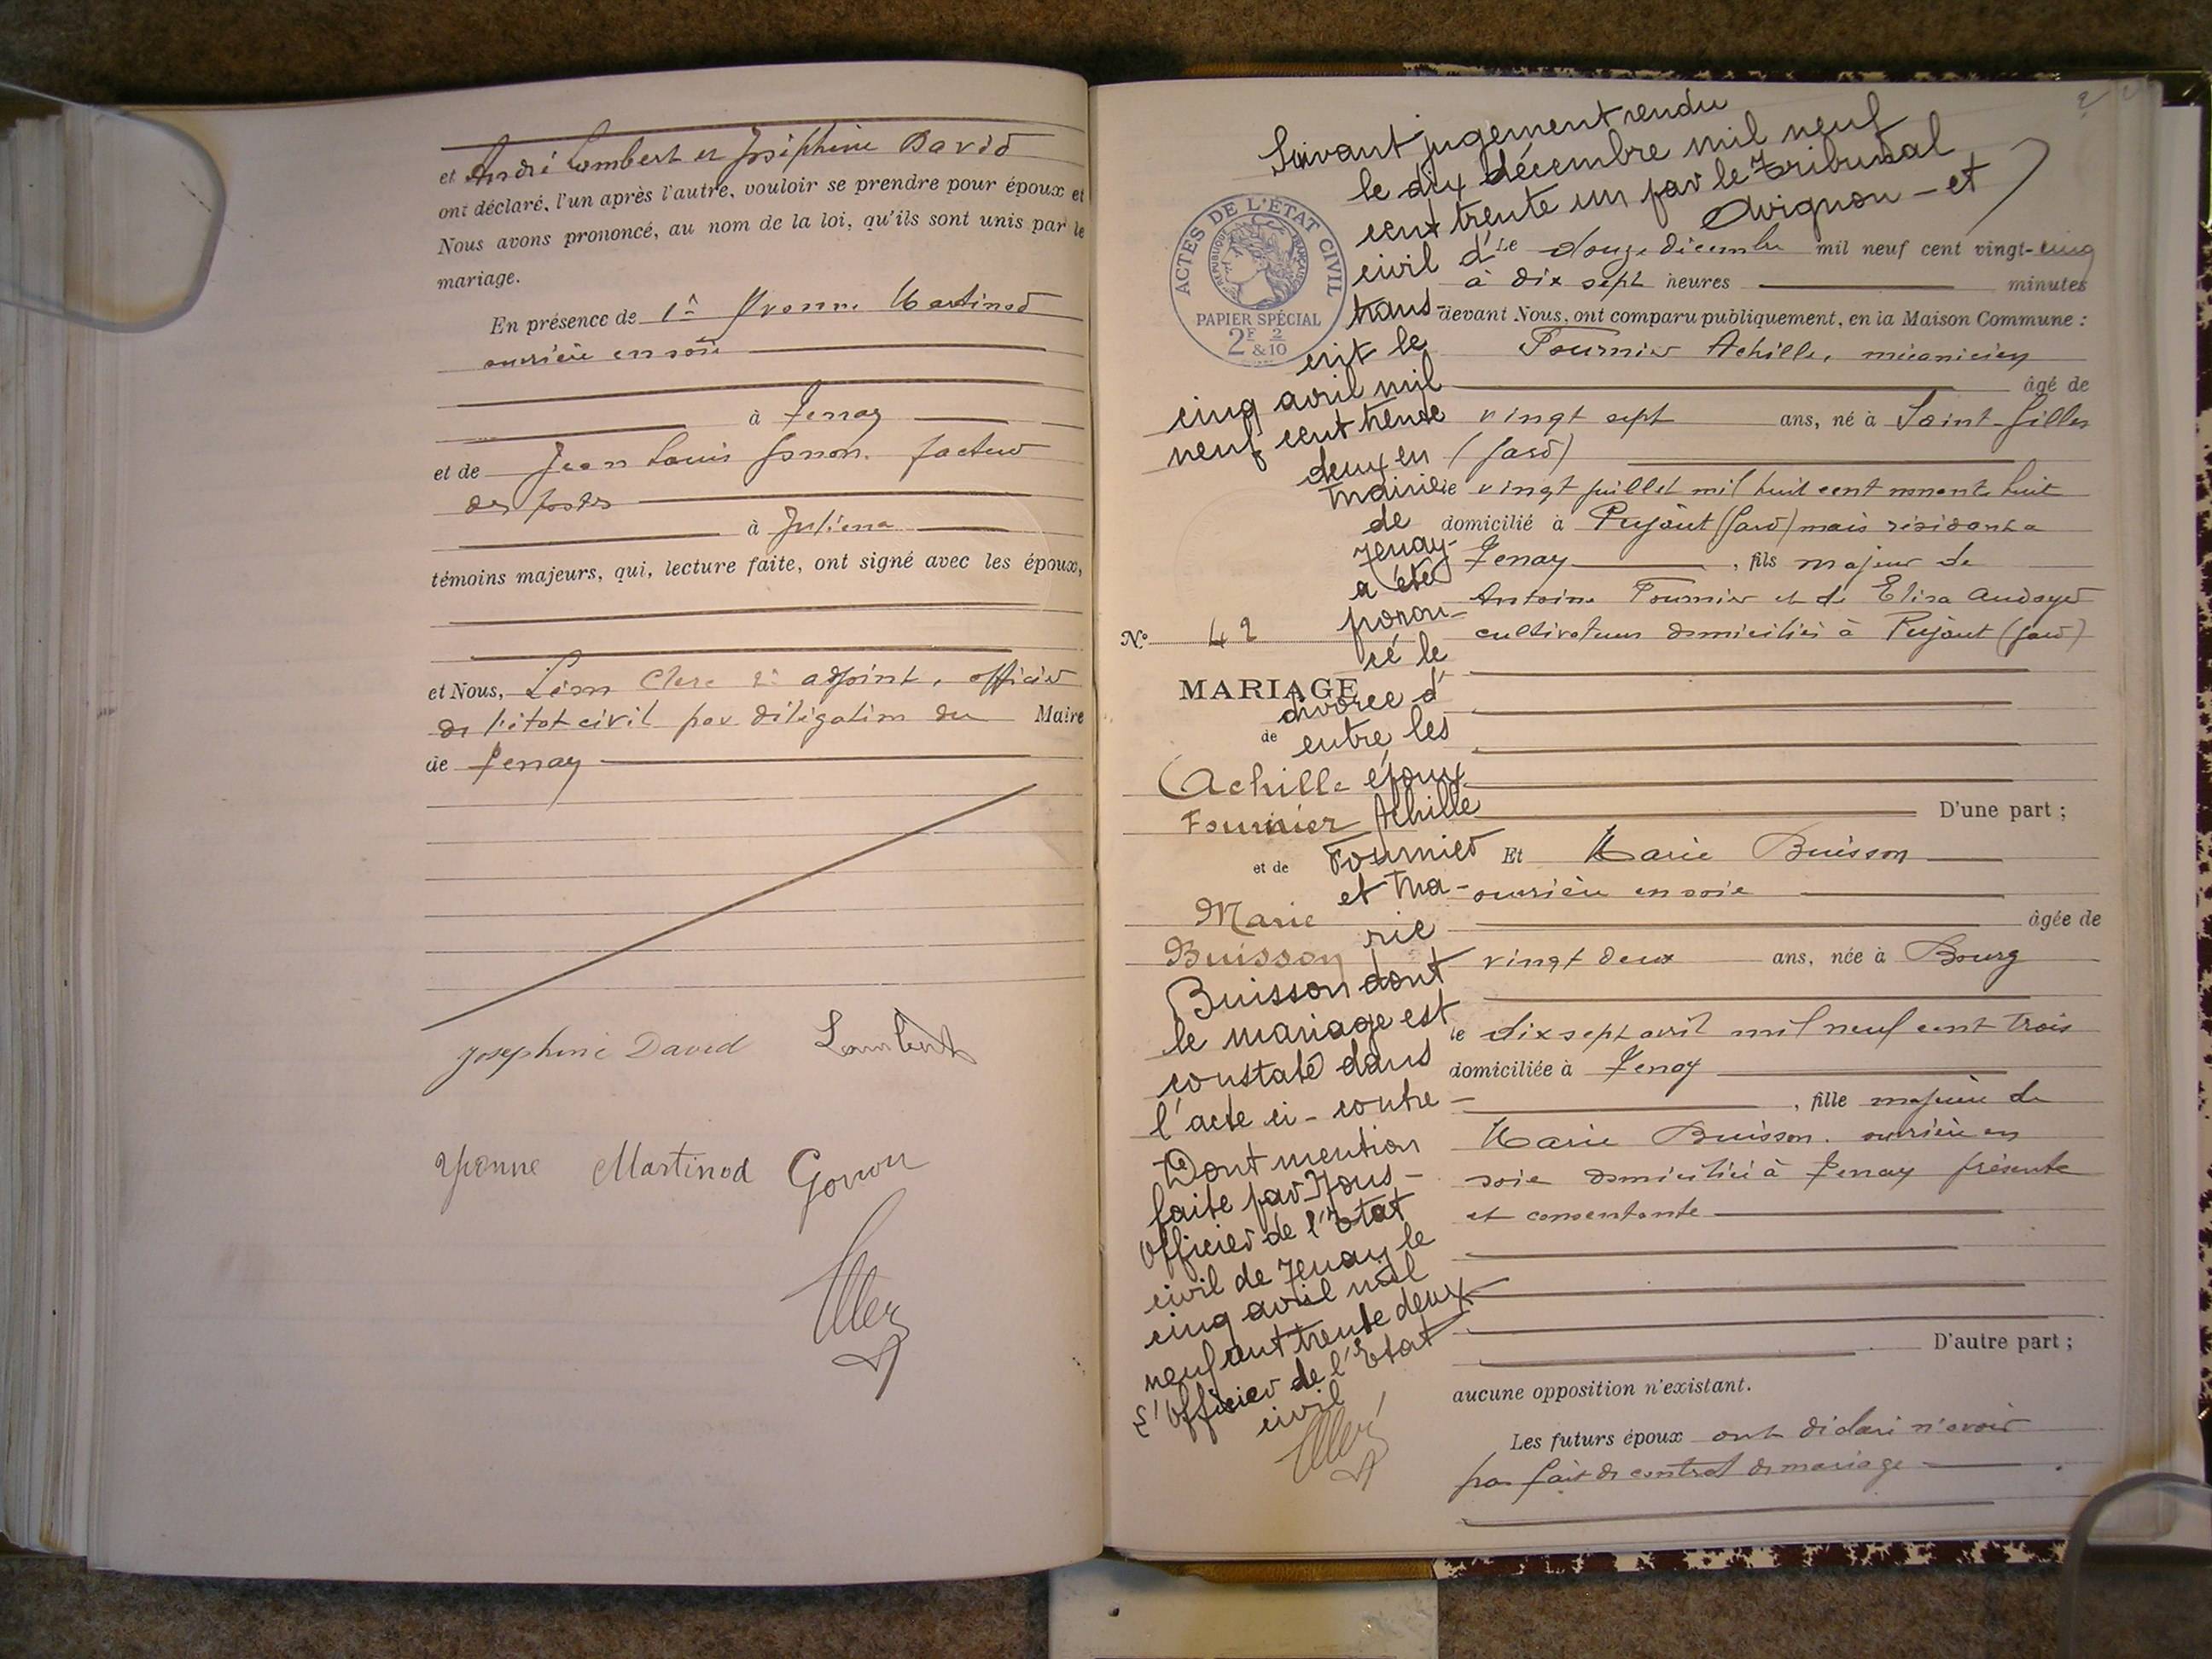 et André Lambert et Joséphine David
ont déclaré, l'un après l'autre, vouloir se prendre pour époux et
Nous avons prononcé, au nom de la loi, qu'ils sont unis par le
mariage.
En présence de 1° Yvonne Martinod
ouvrière en soie
à Tenay
et de Jean Louis Gonon. facteur
des postes
à Jujieux
témoins majeurs, qui, lecture faite, ont signé avec les époux,
et Nous, Léon Clerc 2e adjoint, officier
de l'état civil par délégation du Maire
de Tenay
Josephine David Lambert
Yvonne Martinod Gonon
Suivant jugement rendu
le dix décembre mil neuf
cent trente un par le Tribunal
civil d'Avignon - et
trans-
crit le
cinq avril mil
neuf cent trente
deux en
Mairie
de
Tenay-
a été
pronon-
cé le
divorce d'
entre les
époux
Achille
Fournier
et Ma-
rie
Buisson dont
le mariage est
constaté dans
l'acte ci-contre
Dont mention
faite par Nous-
Officier de l'Etat
civil de Tenay le
cinq avril mil
neuf cent trente deux
L'Officier de l'Etat
civil
ACTES DE L'ÉTAT CIVIL
RÉPUBLIQUE FRANÇAISE
PAPIER SPÉCIAL
2F & 2/10
N° 42
MARIAGE
de
Achille
Fournier
et de
Marie
Buisson
Le douze décembre mil neuf cent vingt-cinq
à dix sept heures minutes
devant Nous, ont comparu publiquement, en la Maison Commune :
Fournier Achille, mécanicien
âgé de
vingt sept ans, né à Saint-Gilles
(Gard)
le vingt juillet mil huit cent nonante huit
domicilié à Pujaut (Gard) mais résidant à
Tenay, fils majeur de
Antoine Fournier et de Elisa
cultivateurs domiciliés à Pujaut (Gard)
D'une part ;
Et Marie Buisson
ouvrière en soie
âgée de
vingt deux ans, née à Bourg
le dix sept avril mil neuf cent trois
domiciliée à Tenay
, fille majeure de
Marie Buisson. ouvrière en
soie domiciliée à Tenay présente
et consentante
D'autre part ;
aucune opposition n'existant.
Les futurs époux ont déclaré n'avoir
pas fait de contrat de mariage